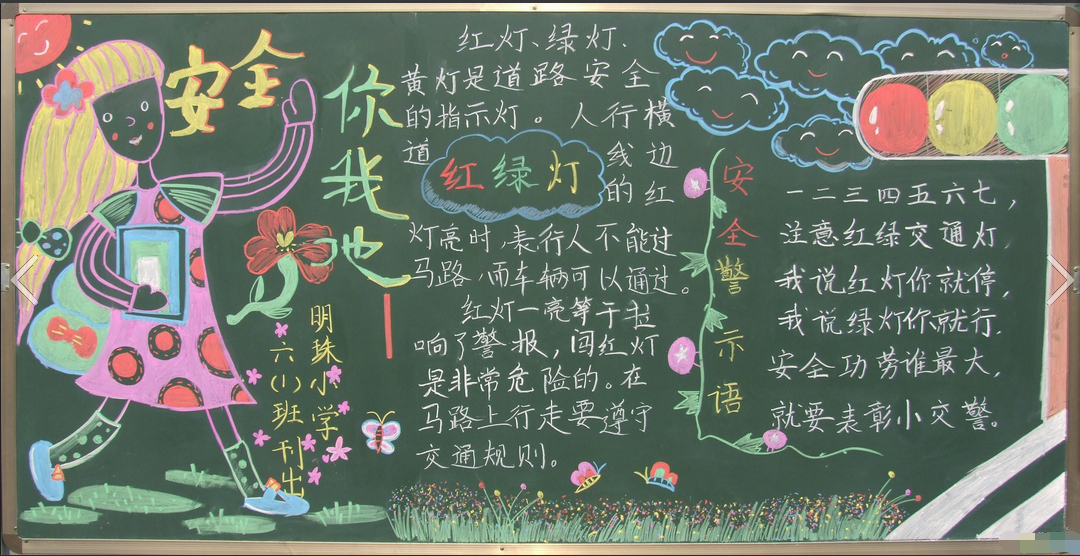 安全
你我他
红灯、绿灯、
黄灯是道路安全
的指示灯。人行横
道 线边
红绿灯
的红
灯亮时,表行人不能过
马路,而车辆可以通过。
红灯一亮等于拉
响了警报,闯红灯
是非常危险的。在
马路上行走要遵守
交通规则。
明珠小学
六(1)班刊出
安全警示语
一二三四五六七,
注意红绿交通灯,
我说红灯你就停,
我说绿灯你就行.
安全功劳谁最大,
就要表彰小交警。